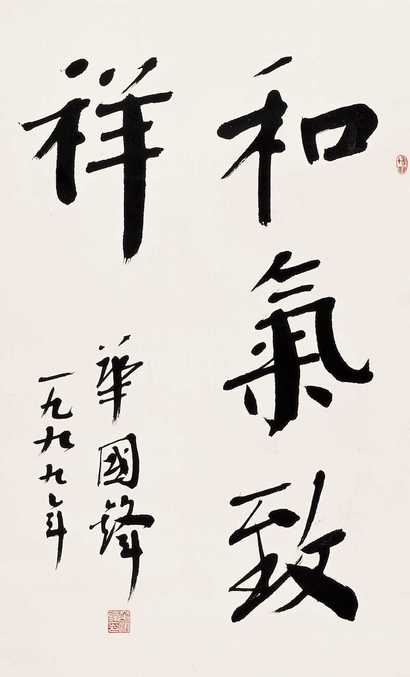 和氣致
祥
華國鋒
一九九九年